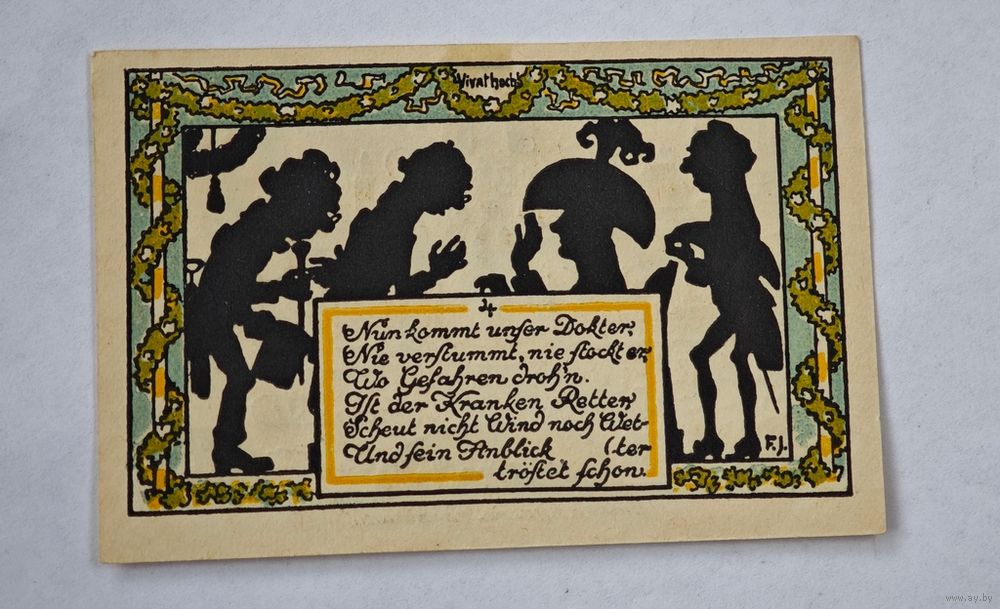 Vivat hoch!
4
Nun kommt unser Dokter,
Nie verstummt, nie stockt er,
Wo Gefahren droh'n.
Ist der Kranken Retter,
Scheut nicht Wind noch Wet-
Und sein Anblick (ter
tröstet schon.
F.J.
www.ay.by